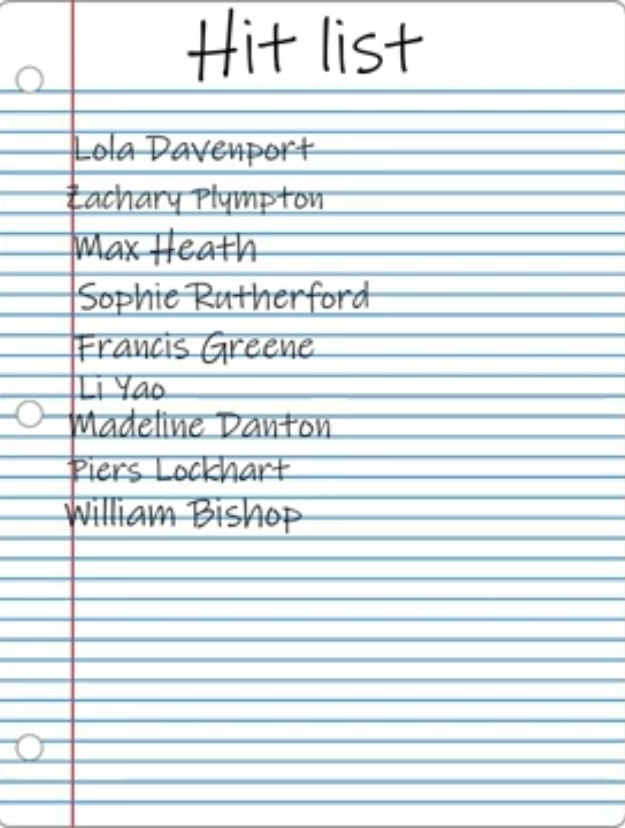 Hit list
Lola Davenport
Zachary Plympton
Max Heath
Sophie Rutherford
Francis Greene
Li Yao
Madeline Danton
Piers Lockhart
William Bishop